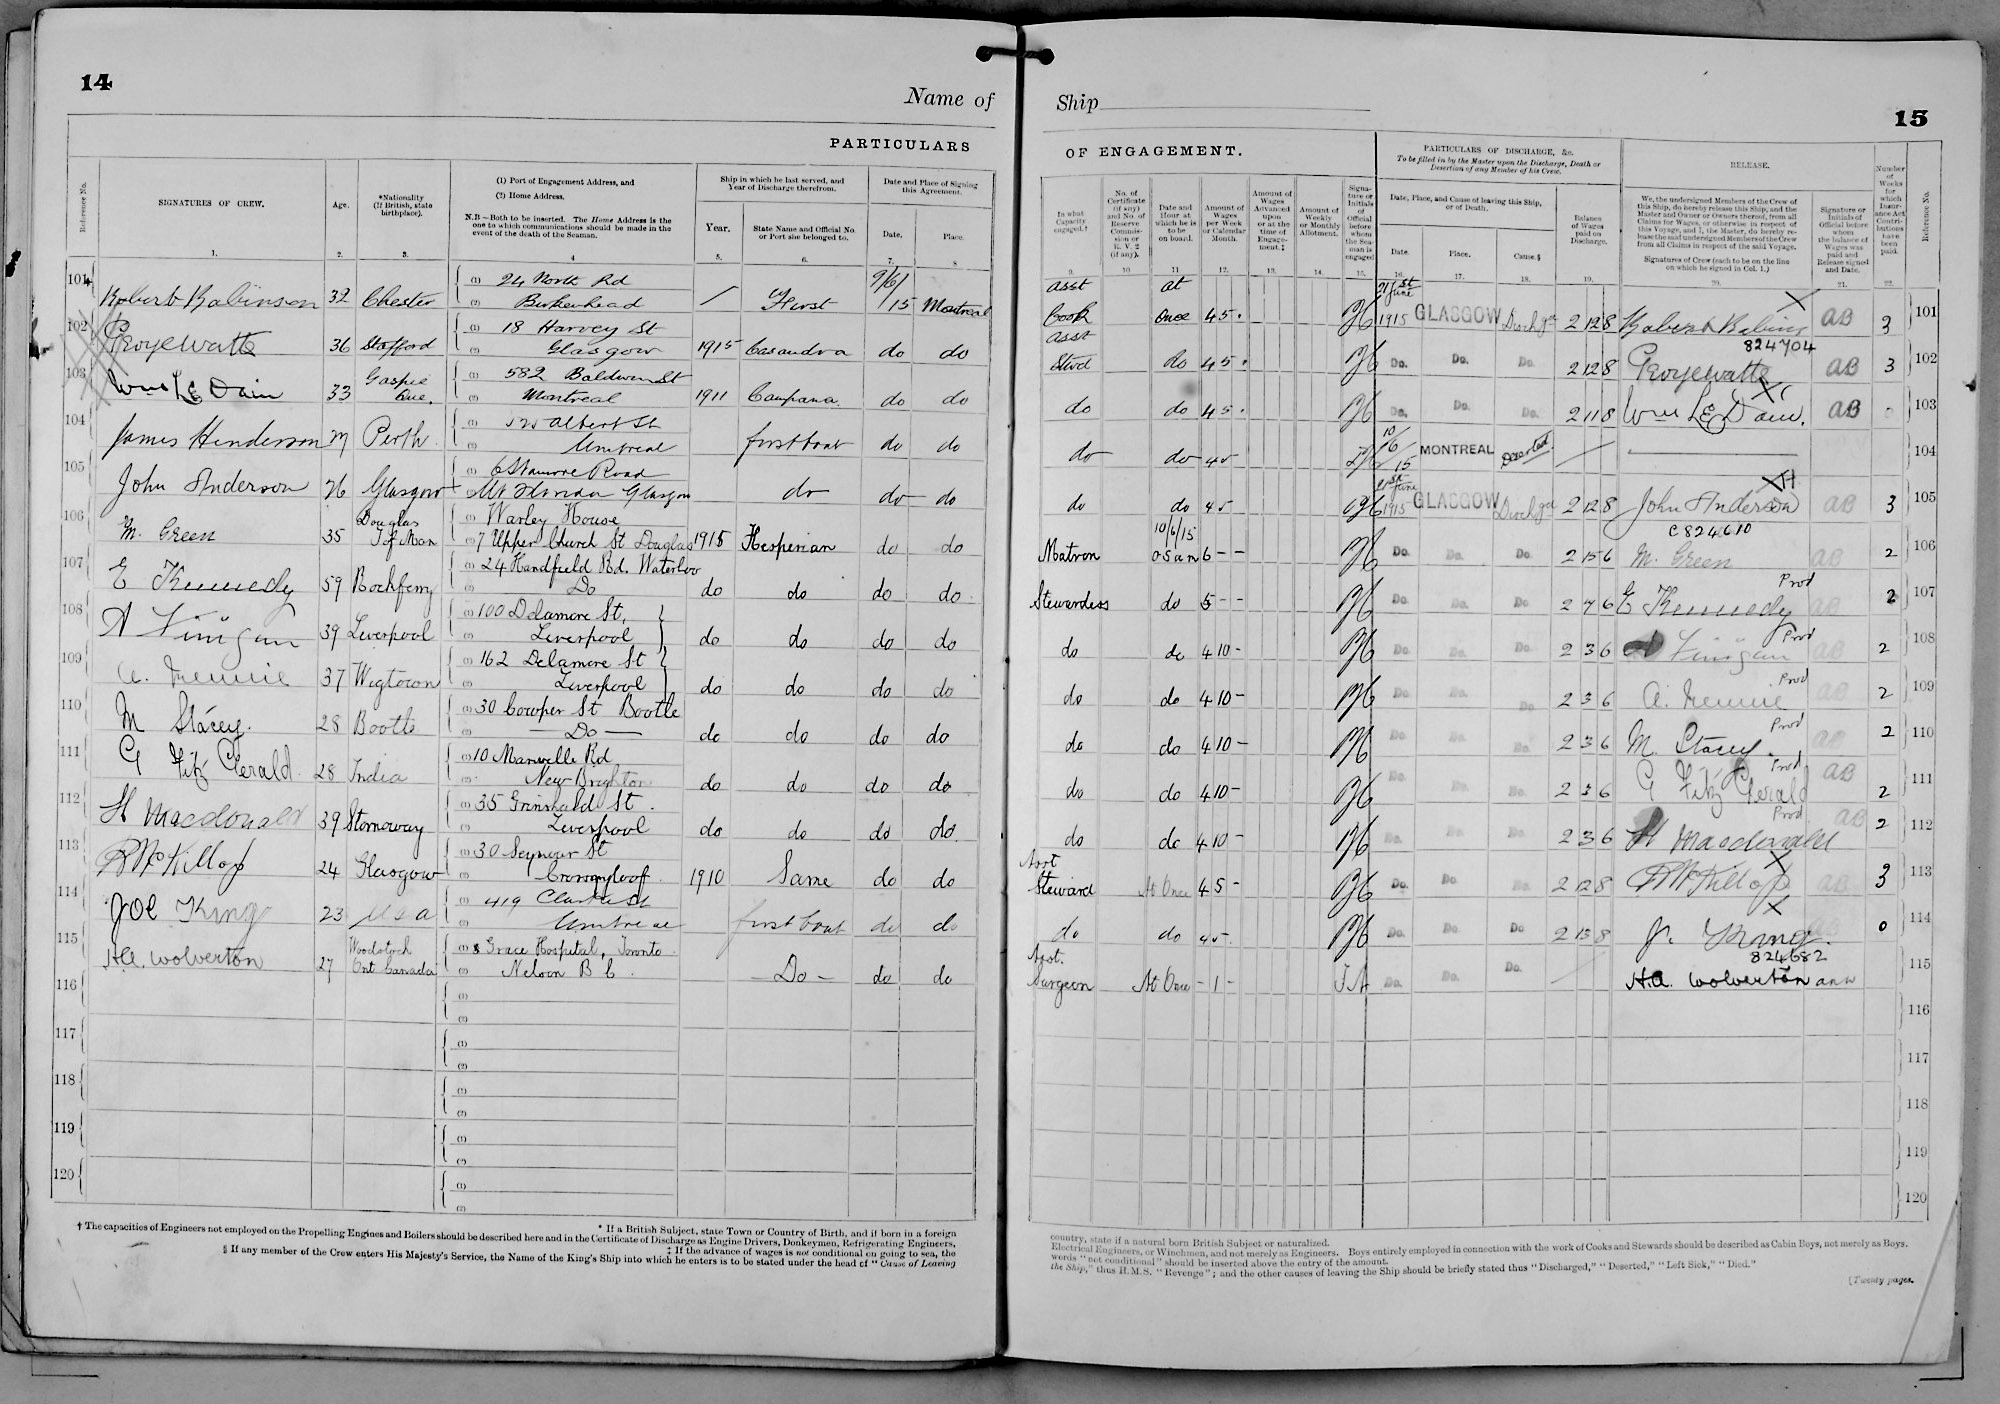 14
Name of
PARTICULARS
Reference No.
SIGNATURES OF CREW.
Age.
*Nationality (If British, state birthplace).
(1) Port of Engagement Address, and
(2) Home Address.
N.B.—Both to be inserted. The Home Address is the one to which communications should be made in the event of the death of the Seaman.
Ship in which he last served, and Year of Discharge therefrom.
Year.
State Name and Official No. or Port she belonged to.
Date and Place of Signing this Agreement.
Date.
Place.
1. 2. 3. 4 5. 6. 7. 8
101 Robert Robinson 32 Chester (1) 24 North Rd (2) Birkenhead / First 9/6/15 Montreal
102 36 Stafford (1) 18 Harvey St (2) Glasgow 1915 Casandra do do
103 Wm Le Dain 33 Gaspie Que. (1) 582 Baldwin St (2) Montreal 1911 Campana do do
104 James Henderson Perth Albert St Montreal first boat do do
105 John Anderson 26 Glasgow Road Mt Florida Glasgow do do do
106 M. Green 35 Douglas I of Man (1) Warley House (2) 7 Upper Church St Douglas 1915 Hesperian do do
107 E Kennedy 59 Rockferry (1) 24 Handfield Rd. Waterloo (2) Do do do do do
108 A Finigan 39 Liverpool (1) 100 Delamore St, (2) Liverpool do do do do
109 37 Wigtown (1) 162 Delamore St (2) Liverpool do do do do
110 M Stacey. 28 Bootle (1) 30 Cowper St Bootle (2) — Do — do do do do
111 G Fitz Gerald. 28 India (1) 10 Manville Rd (2) New Brighton do do do do
112 H Macdonald 39 Stornoway (1) 35 St. (2) Liverpool do do do do
113 R McKillop 24 Glasgow (1) 30 Seymour St (2) Crossmyloof 1910 Same do do
114 Joe King 23 USA 419 Clarke St Montreal first boat do do
115 H.A. Wolverton 27 Woodstock Ont Canada (1) Grace Hospital, Toronto (2) Nelson B C. — Do — do do
116
117
118
119
120
† The capacities of Engineers not employed on the Propelling Engines and Boilers should be described here and in the Certificate of Discharge as Engine Drivers, Donkeymen, Refrigerating Engineers,
* If a British Subject, state Town or Country of Birth, and if born in a foreign
‡ If the advance of wages is not conditional on going to sea, the
§ If any member of the Crew enters His Majesty's Service, the Name of the King's Ship into which he enters is to be stated under the head of "Cause of Leaving
Ship
15
OF ENGAGEMENT.
In what Capacity engaged.†
No. of Certificate (if any) and No. of Reserve Commission or R. V. 2 (if any).
Date and Hour at which he is to be on board.
Amount of Wages per Week or Calendar Month.
Amount of Wages Advanced upon or at the time of Engagement.‡
Amount of Weekly or Monthly Allotment.
Signature or Initials of Official before whom the Seaman is engaged
PARTICULARS OF DISCHARGE, &c.
To be filled in by the Master upon the Discharge, Death or Desertion of any Member of his Crew.
Date, Place, and Cause of leaving this Ship, or of Death.
Date.
Place.
Cause.§
Balance of Wages paid on Discharge.
RELEASE.
We, the undersigned Members of the Crew of this Ship, do hereby release this Ship, and the Master and Owner or Owners thereof, from all Claims for Wages, or otherwise in respect of this Voyage, and I, the Master, do hereby release the said undersigned Members of the Crew from all Claims in respect of the said Voyage.
Signatures of Crew (each to be on the line on which he signed in Col. 1.)
Signature or Initials of Official before whom the balance of Wages was paid and Release signed and Date.
Number of Weeks for which Insurance Act Contributions have been paid.
Reference No.
9. 10 11 12. 13. 14. 15. 16. 17. 18. 19. 20. 21. 22.
asst Cook at once 45. 21st June 1915 GLASGOW Dischgd 2 12 8 X AB 3 101
asst Stwd do 45. Do. Do. Do. 2 12 8 824704 AB 3 102
do do 45. Do. Do. Do. 2 11 8 Wm LE Dain. AB 103
do do 45 10/6/15 MONTREAL Deserted / — 104
do do 45 June 1915 GLASGOW Dischgd 2 12 8 John Anderson AB 3 105
Matron 10/6/15 6 - - Do. Do. Do. 2 15 6 C824610 M. Green AB 2 106
Stewardess do 5 - - Do. Do. Do 2 7 6 E Kennedy Prod AB 2 107
do do 4 10 - Do. Do. Do. 2 3 6 A Finigan Prod AB 2 108
do do 4 10 - Do. Do. Do. 2 3 6 Prod AB 2 109
do do 4 10 - Do. Do. Do. 2 3 6 M. Stacey. Prod AB 2 110
do do 4 10 - Do. Do. Do. 2 3 6 G Fitz Gerald Prod AB 2 111
do do 4 10 - Do. Do. Do. 2 3 6 H Macdonald Prod AB 2 112
Asst Steward At Once 4 5 - Do. Do. Do. 2 12 8 R McKillop X AB 3 113
do do 45. Do. Do. Do 2 13 8 J. King. X AB 0 114
Asst. Surgeon At Once - 1 - Do. Do. Do. / 824682 H.A. Wolverton 115
116
117
118
119
120
country, state if a natural born British Subject or naturalized.
Electrical Engineers, or Winchmen, and not merely as Engineers. Boys entirely employed in connection with the work of Cooks and Stewards should be described as Cabin Boys, not merely as Boys.
words "not conditional" should be inserted above the entry of the amount.
the Ship," thus H.M.S. "Revenge"; and the other causes of leaving the Ship should be briefly stated thus "Discharged," "Deserted," "Left Sick," "Died."
[Twenty pages.